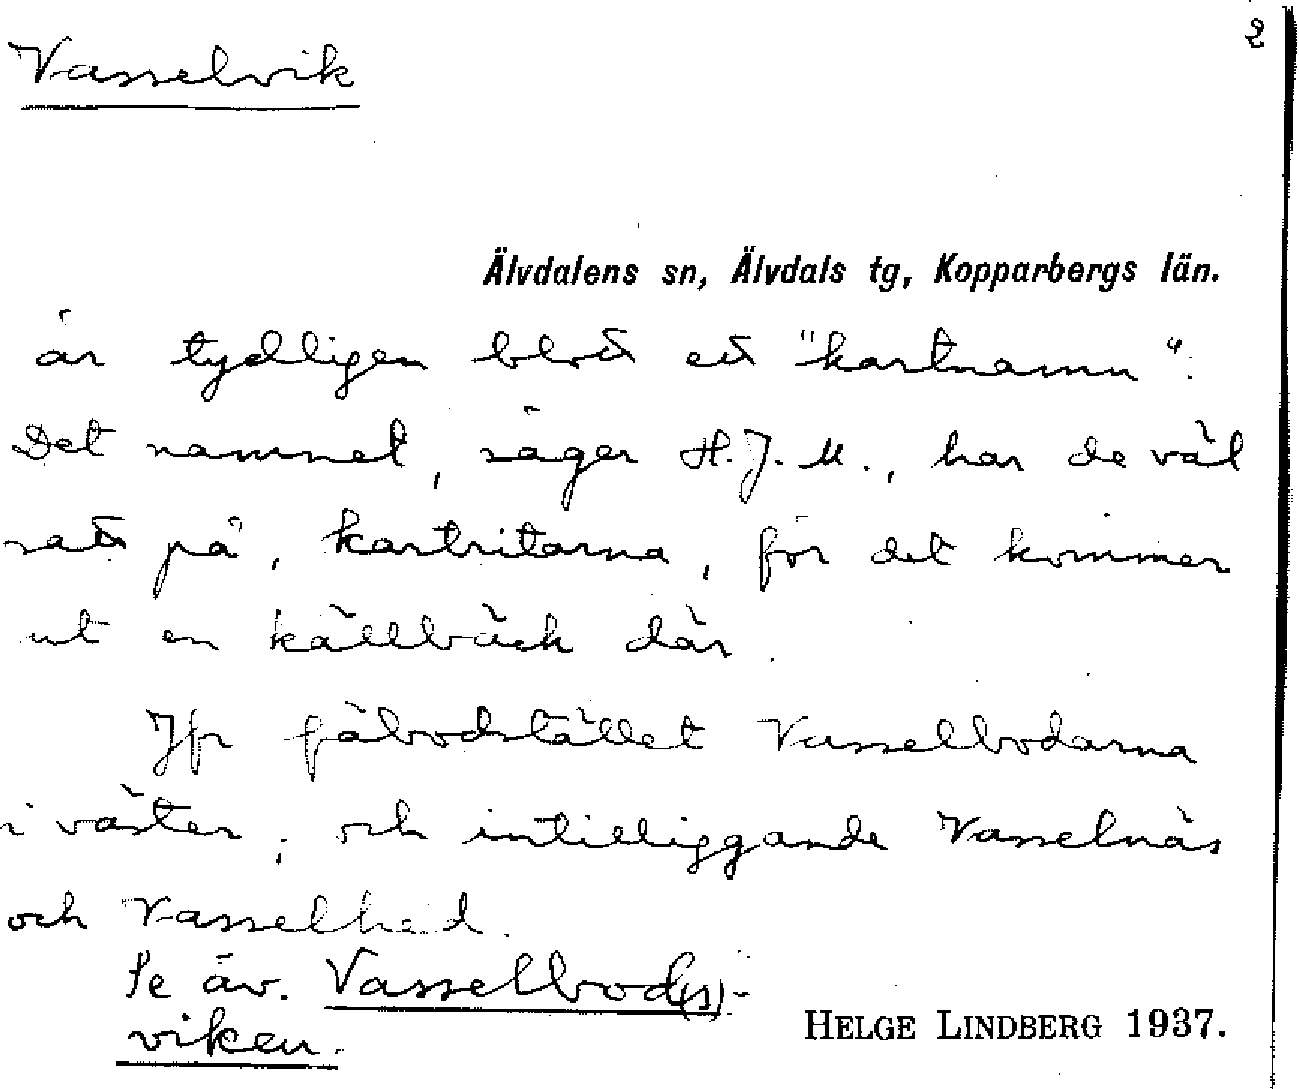 2
Vasselvik
Älvdalens sn, Älvdals tg, Kopparbergs län.
är tydligen blott ett "kartnamn".
Det namnet, säger H.J.M., har de väl
satt på, kartritarna, för det kommer
ut en källbäck där.
Jfr fäbodstället Vasselbodarna
i väster, och intilliggande Vasselnäs
och Vasselhed.
Se äv. Vasselbod(s)-
viken.
HELGE LINDBERG 1937.